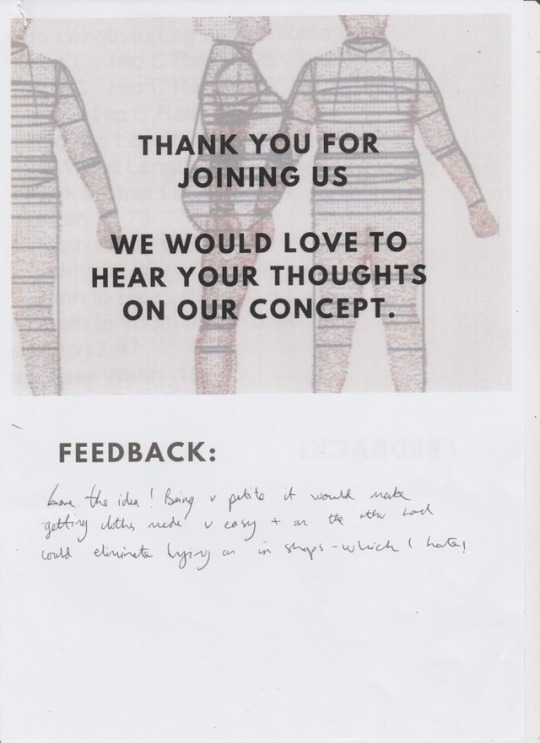 THANK YOU FOR
JOINING US
WE WOULD LOVE TO
HEAR YOUR THOUGHTS
ON OUR CONCEPT.
FEEDBACK:
Love the idea! Being v petite it would make
getting clothes made v easy + on the other hand
could eliminate trying on in shops - which I hate!